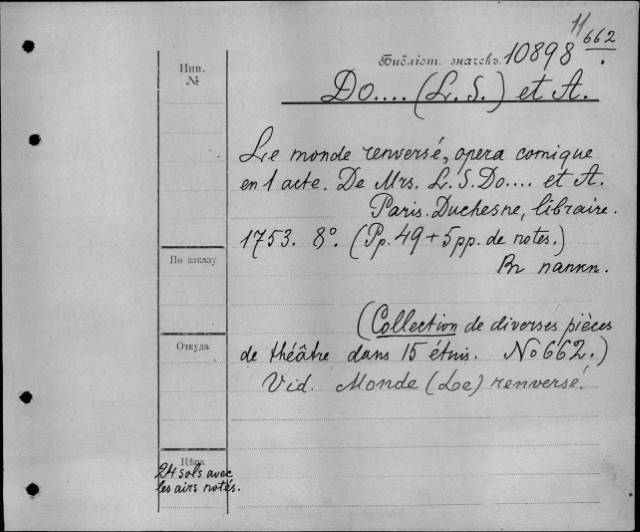 11/662
Библіот. значекъ. 10898.
Инв.
№
Do.... (L. S.) et A.
Le monde renversé, opera comique
en 1 acte. De Mrs. L. S. Do.... et A.
Paris. Duchesne, libraire.
1753. 8°. (Pp. 49 + 5 pp. de notes.)
Въ папкѣ.
По заказу
(Collection de diverses pièces
Откуда
de théâtre dans 15 étuis. No 662.)
Vid. Monde (Le) renversé.
Цѣна
24 sols avec
les airs notés.